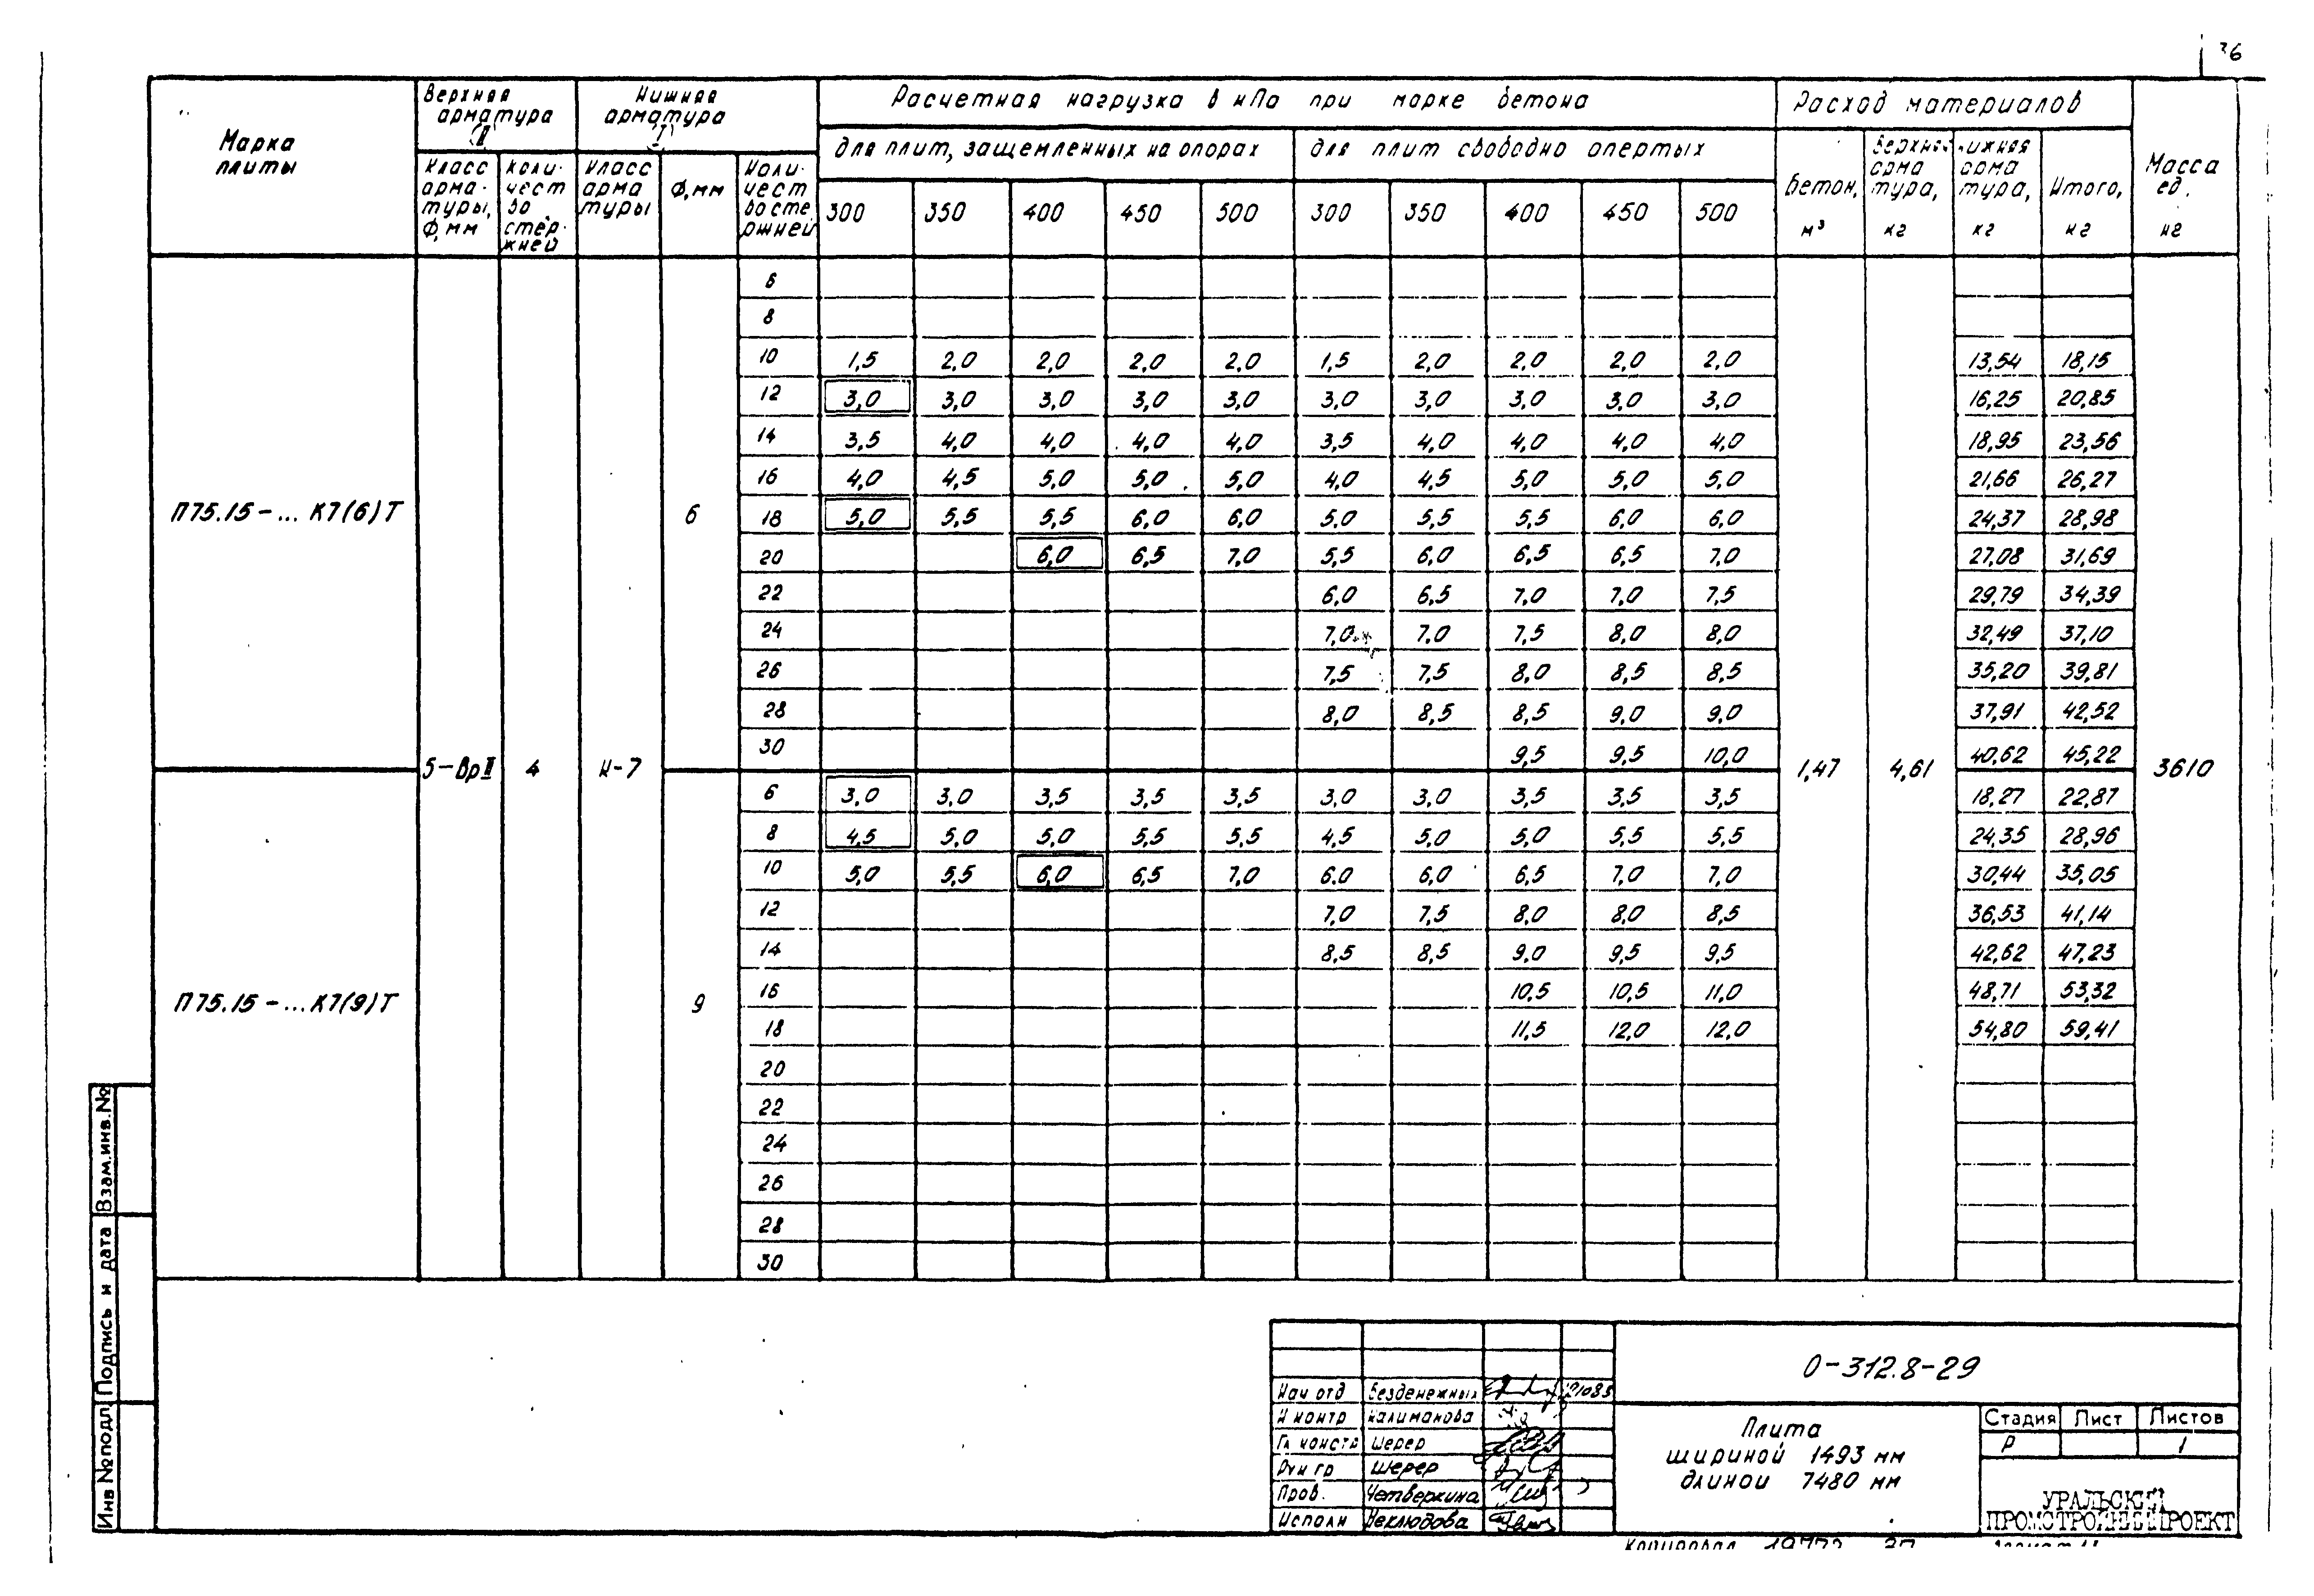 36
Марка плиты
Верхняя арматура (II)
Нижняя арматура (I)
Расчетная нагрузка в кПа при марке бетона
Расход материалов
Масса ед. кг
для плит, защемленных на опорах
для плит свободно опертых
Класс арматуры, Ф, мм
Количество стержней
Класс арматуры
Ф, мм
Количество стержней
300 350 400 450 500 300 350 400 450 500
Бетон, м³
Верхняя арматура, кг
Нижняя арматура, кг
Итого, кг
6
8
10 1,5 2,0 2,0 2,0 2,0 1,5 2,0 2,0 2,0 2,0 13,54 18,15
12 3,0 3,0 3,0 3,0 3,0 3,0 3,0 3,0 3,0 3,0 16,25 20,85
14 3,5 4,0 4,0 4,0 4,0 3,5 4,0 4,0 4,0 4,0 18,95 23,56
16 4,0 4,5 5,0 5,0 5,0 4,0 4,5 5,0 5,0 5,0 21,66 26,27
П75.15-... К7(6)Т 6 18 5,0 5,5 5,5 6,0 6,0 5,0 5,5 5,5 6,0 6,0 24,37 28,98
20 6,0 6,5 7,0 5,5 6,0 6,5 6,5 7,0 27,08 31,69
22 6,0 6,5 7,0 7,0 7,5 29,79 34,39
24 7,0 7,0 7,5 8,0 8,0 32,49 37,10
26 7,5 7,5 8,0 8,5 8,5 35,20 39,81
28 8,0 8,5 8,5 9,0 9,0 37,91 42,52
30 9,5 9,5 10,0 40,62 45,22
5-ВрII 4 К-7 1,47 4,61 3610
6 3,0 3,0 3,5 3,5 3,5 3,0 3,0 3,5 3,5 3,5 18,27 22,87
8 4,5 5,0 5,0 5,5 5,5 4,5 5,0 5,0 5,5 5,5 24,35 28,96
10 5,0 5,5 6,0 6,5 7,0 6,0 6,0 6,5 7,0 7,0 30,44 35,05
12 7,0 7,5 8,0 8,0 8,5 36,53 41,14
14 8,5 8,5 9,0 9,5 9,5 42,62 47,23
П75.15-... К7(9)Т 9 16 10,5 10,5 11,0 48,71 53,32
18 11,5 12,0 12,0 54,80 59,41
20
22
24
26
28
30
Взам.инв.№
Подпись и дата
Инв №подл
О-312.8-29
Нач отд Безденежных
Н контр Калиманова
Гл констр Шерер
Рук гр Шерер
Пров. Четверкина
Исполн Неклюдова
Плита
шириной 1493 мм
длиной 7480 мм
Стадия Лист Листов
Р 1
УРАЛЬСКИЙ
ПРОМСТРОЙНИИПРОЕКТ
Копировал